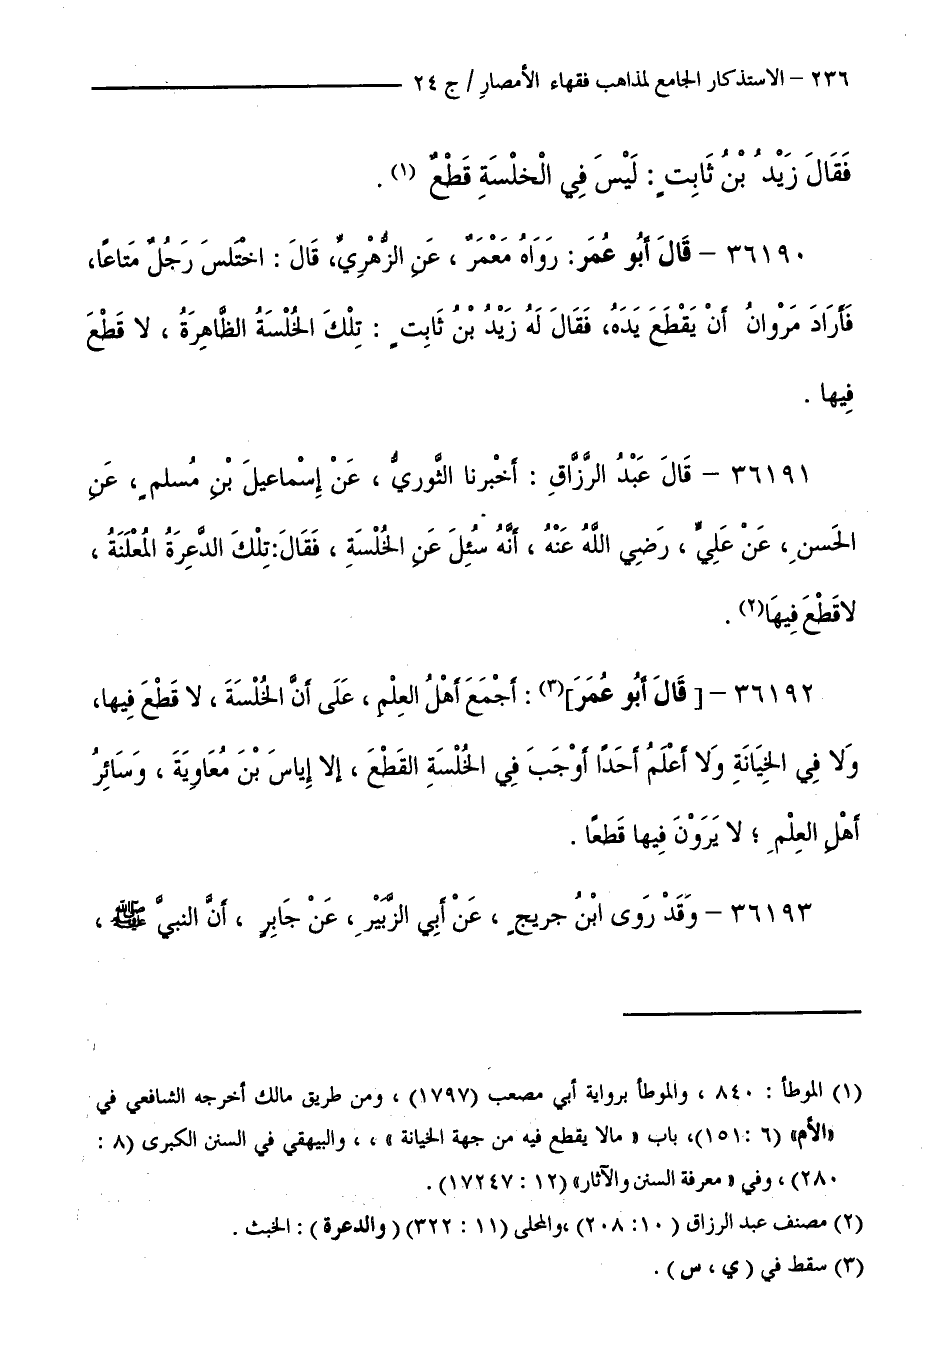 ٢٣٦ – الاستذكار الجامع لمذاهب فقهاء الأمصارِ / ج ٢٤
فَقَالَ زَيْدُ بْنُ ثَابِتٍ : لَيْسَ فِي الْخلْسَةِ قَطْعٌ (١) .
٣٦١٩٠ – قَالَ أَبُو عُمَرَ : رَوَاهُ مَعْمَرٌ ، عَنِ الزُّهْرِيِّ، قَالَ : اخْتَلسَ رَجُلٌ مَتَاعًا،
فَأَرَادَ مَرْوانُ أَنْ يَقْطَعَ يَدَهُ، فَقَالَ لَهُ زَيْدُ بْنُ ثَابِتٍ : تِلْكَ الخُلْسَةُ الظَّاهِرَةُ ، لا قَطْعَ
فِيها .
٣٦١٩١ – قَالَ عَبْدُ الرَّزَّاقِ : أَخْبرنا الثَّوريُّ ، عَنْ إِسْماعيلَ بْنِ مُسلمٍ ، عَنِ
الحَسنِ ، عَنْ عَلِيٍّ ، رَضِي اللَّهُ عَنْهُ ، أَنَّهُ سُئِلَ عَنِ الخُلْسَةِ ، فَقَالَ: تِلْكَ الدَّعرَةُ المُعْلَنَةُ ،
لاقَطْعَ فِيهَا(٢) .
٣٦١٩٢ – [ قَالَ أَبُو عُمَرَ](٣) : أَجْمَعَ أَهْلُ العِلْمِ ، عَلَى أَنَّ الخُلْسَةَ ، لا قَطْعَ فِيها،
وَلَا فِي الخِيَانَةِ وَلَا أَعْلَمُ أَحَدًا أَوْجَبَ فِي الخُلْسَةِ القَطْعَ ، إلا إِياسَ بْنَ مُعَاوِيَةَ ، وَسَائِرُ
أَهْلِ العِلْمِ ؛ لا يَرَوْنَ فِيها قَطعًا .
٣٦١٩٣ – وَقَدْ رَوى ابْنُ جريجٍ ، عَنْ أَبِي الزَّبَيْرِ ، عَنْ جَابِرٍ ، أَنَّ النبيَّ ﷺ ،
(١) الموطأ : ٨٤٠ ، والموطأ برواية أبي مصعب (١٧٩٧) ، ومن طريق مالك أخرجه الشافعي في
«الأم» (٦ :١٥١)، باب « مالا يقطع فيه من جهة الخيانة » ، ، والبيهقي في السنن الكبرى (٨ :
٢٨٠) ، وفي « معرفة السنن والآثار» (١٢ : ١٧٢٤٧) .
(٢) مصنف عبد الرزاق ( ١٠ :٢٠٨) ،والمحلى (١١ : ٣٢٢) ( والدعرة ) : الخبث .
(٣) سقط في ( ي ، س ) .